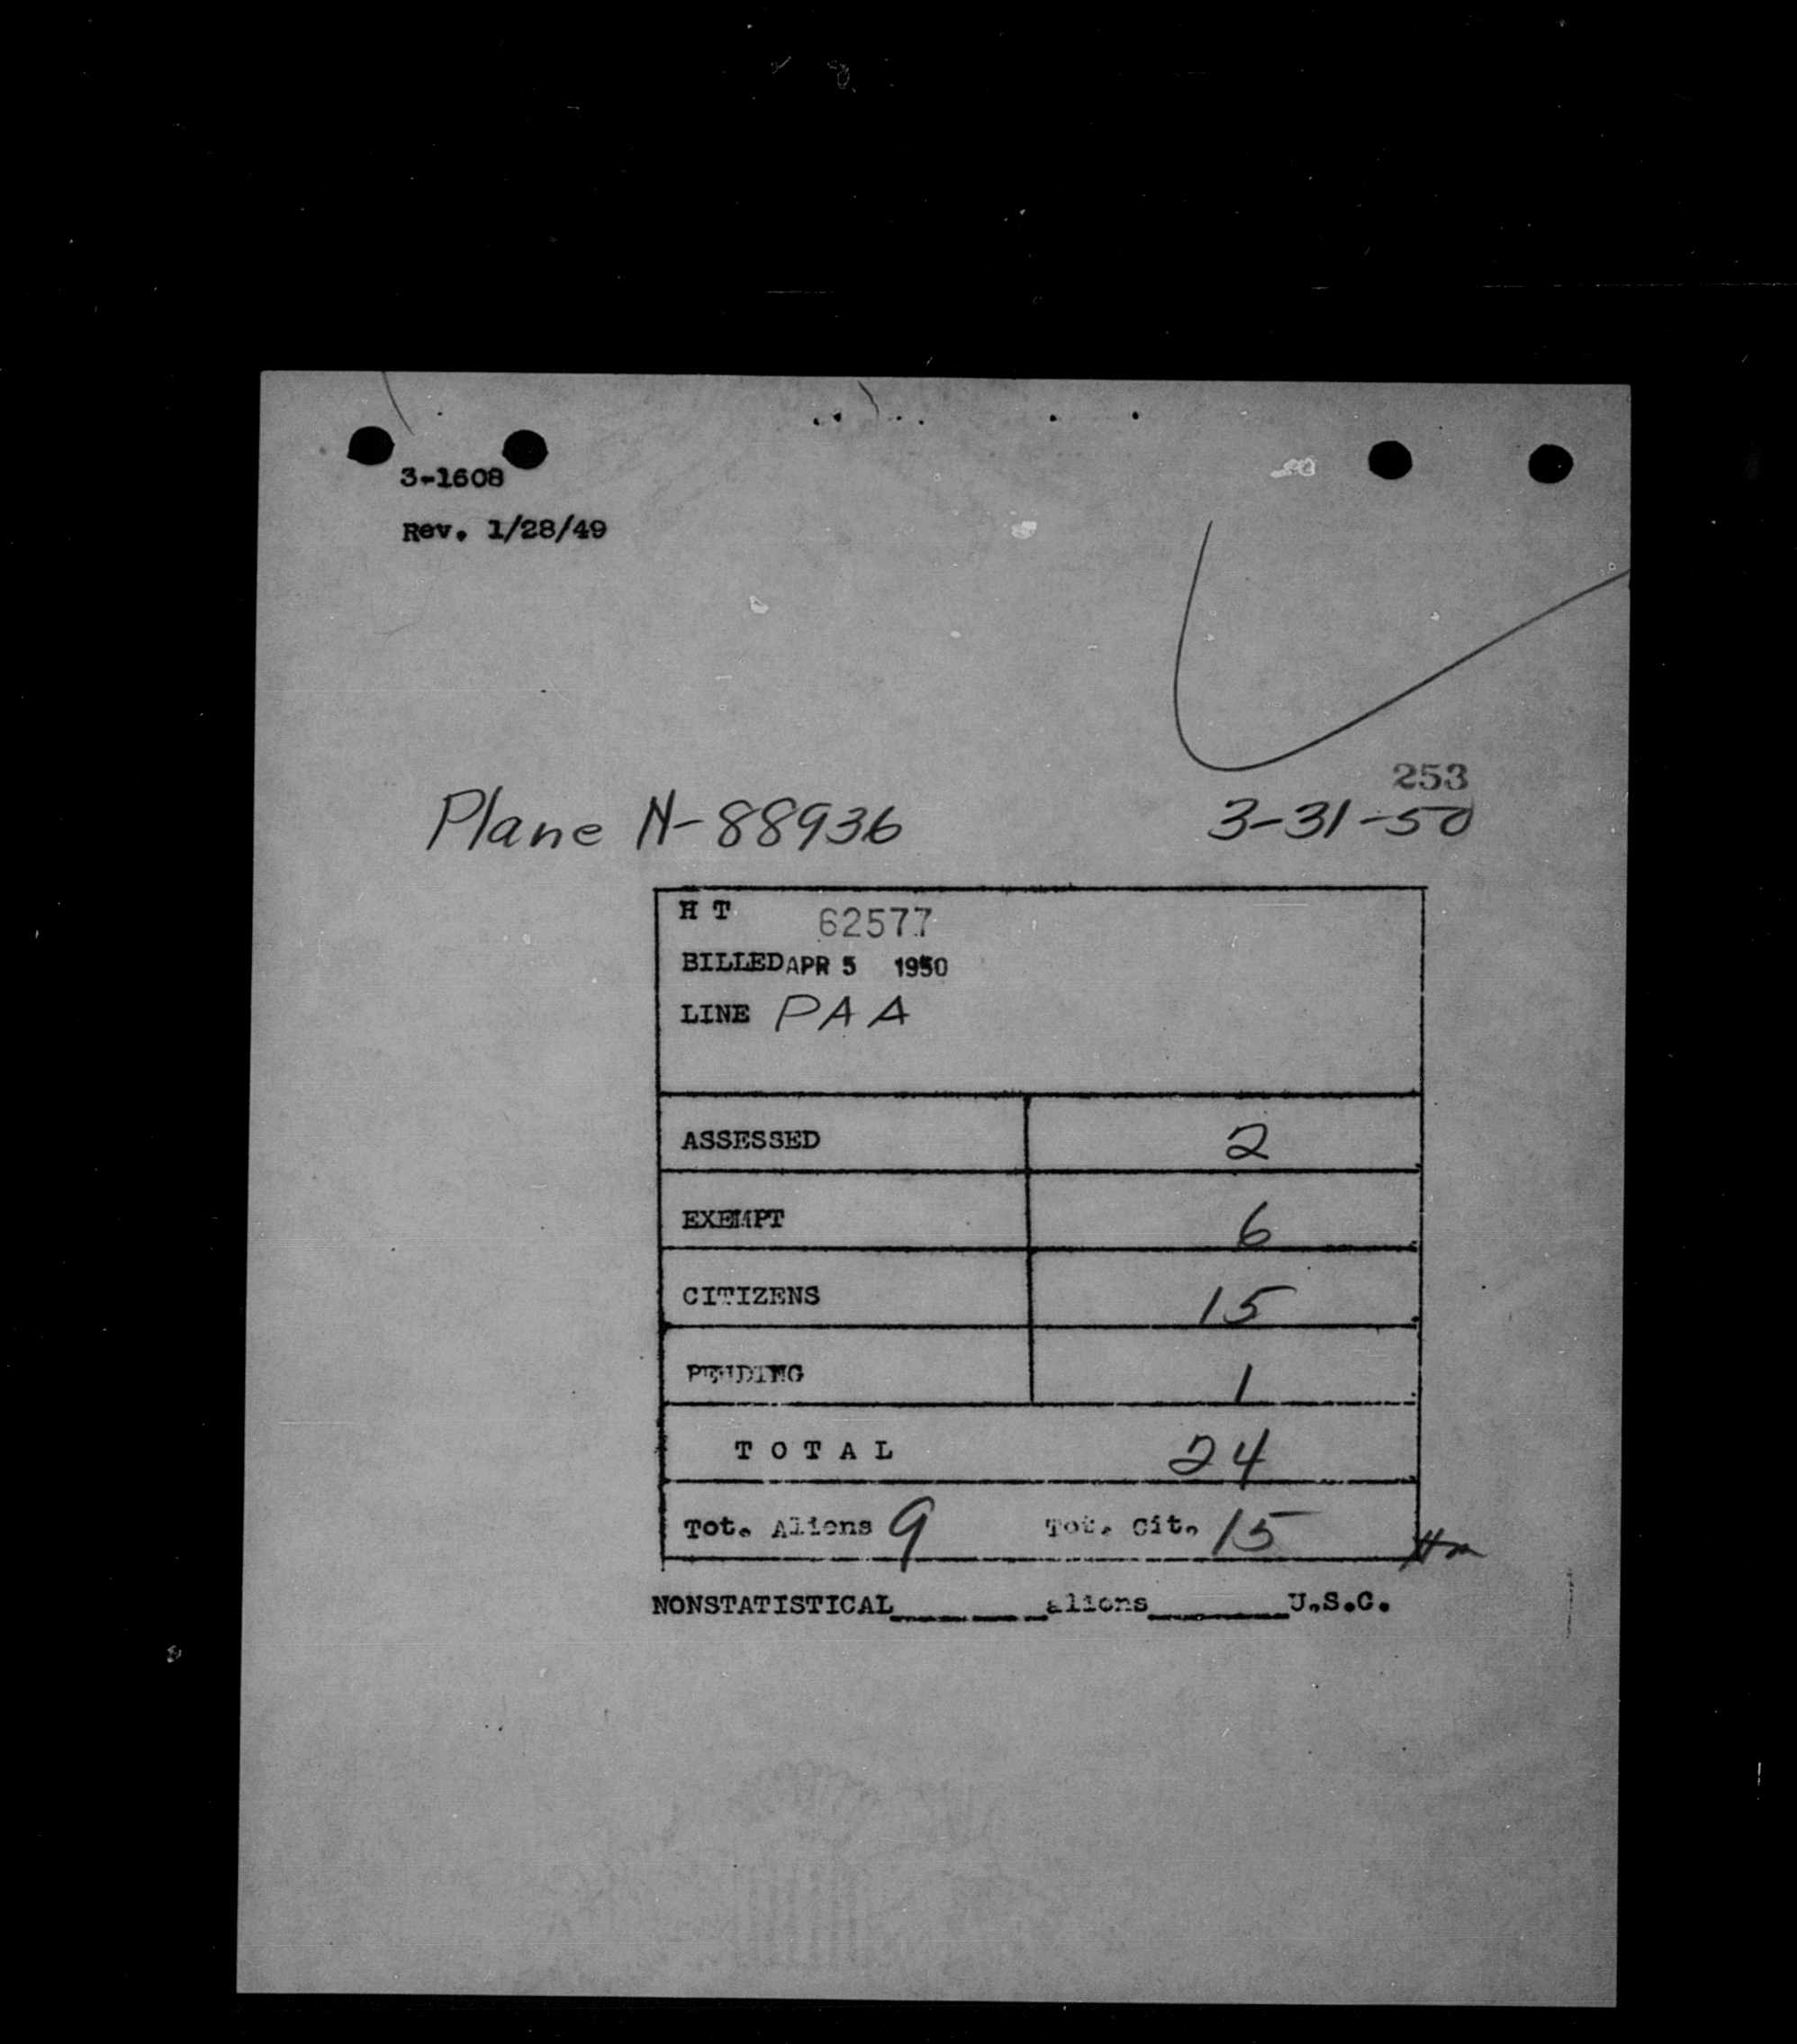 3-1608
Rev. 1/28/49
253
Plane N-88936 3-31-50
H T 62577
BILLED APR 5 1950
LINE PAA
ASSESSED 2
EXEMPT 6
CITIZENS 15
PENDING 1
T O T A L 24
Tot. Aliens 9 Tot. Cit. 15
NONSTATISTICAL________aliens________U.S.C.